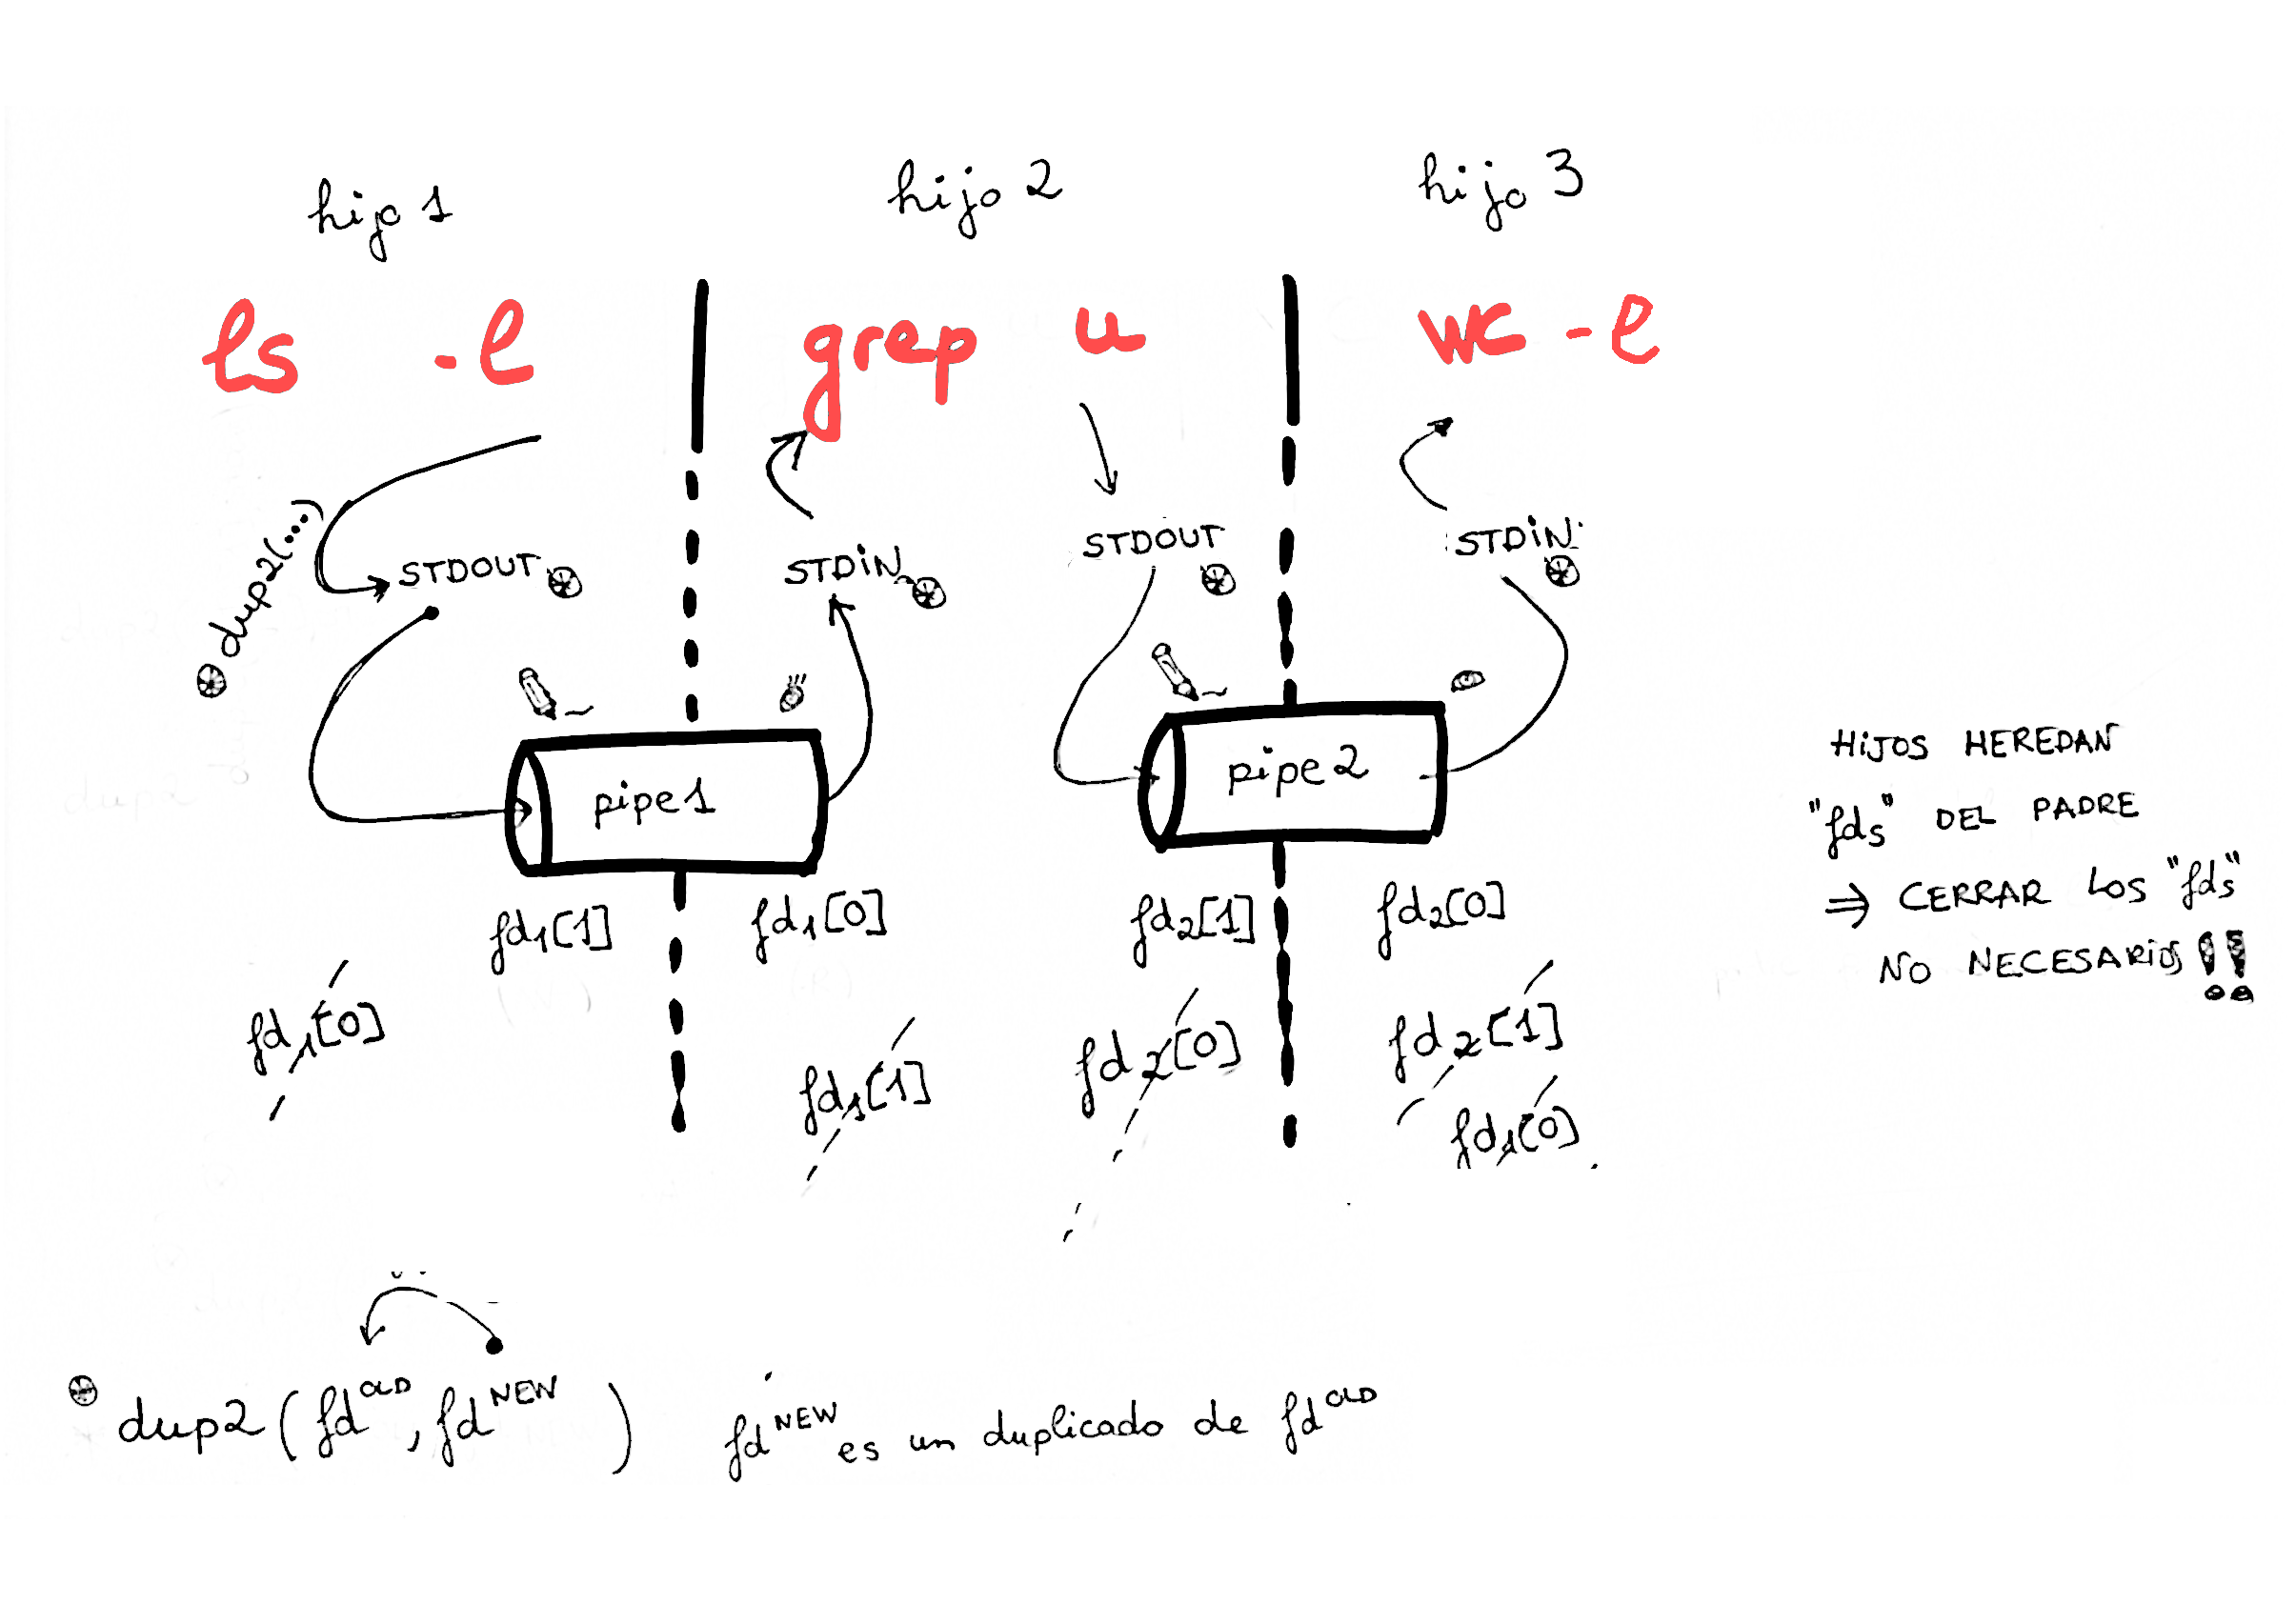 hijo 1
hijo 2
hijo 3
ls -l | grep u | wc -l
dup2(....)
STDOUT
STDIN
STDOUT
STDIN
pipe1
pipe2
fd1[1]
fd1[0]
fd2[1]
fd2[0]
fd1[0]
fd1[1]
fd2[0]
fd2[1]
fd1[0]
HIJOS HEREDAN
"fds" DEL PADRE
⇒ CERRAR LOS "fds"
NO NECESARIOS !!
dup2(fd^OLD, fd^NEW) fd^NEW es un duplicado de fd^OLD